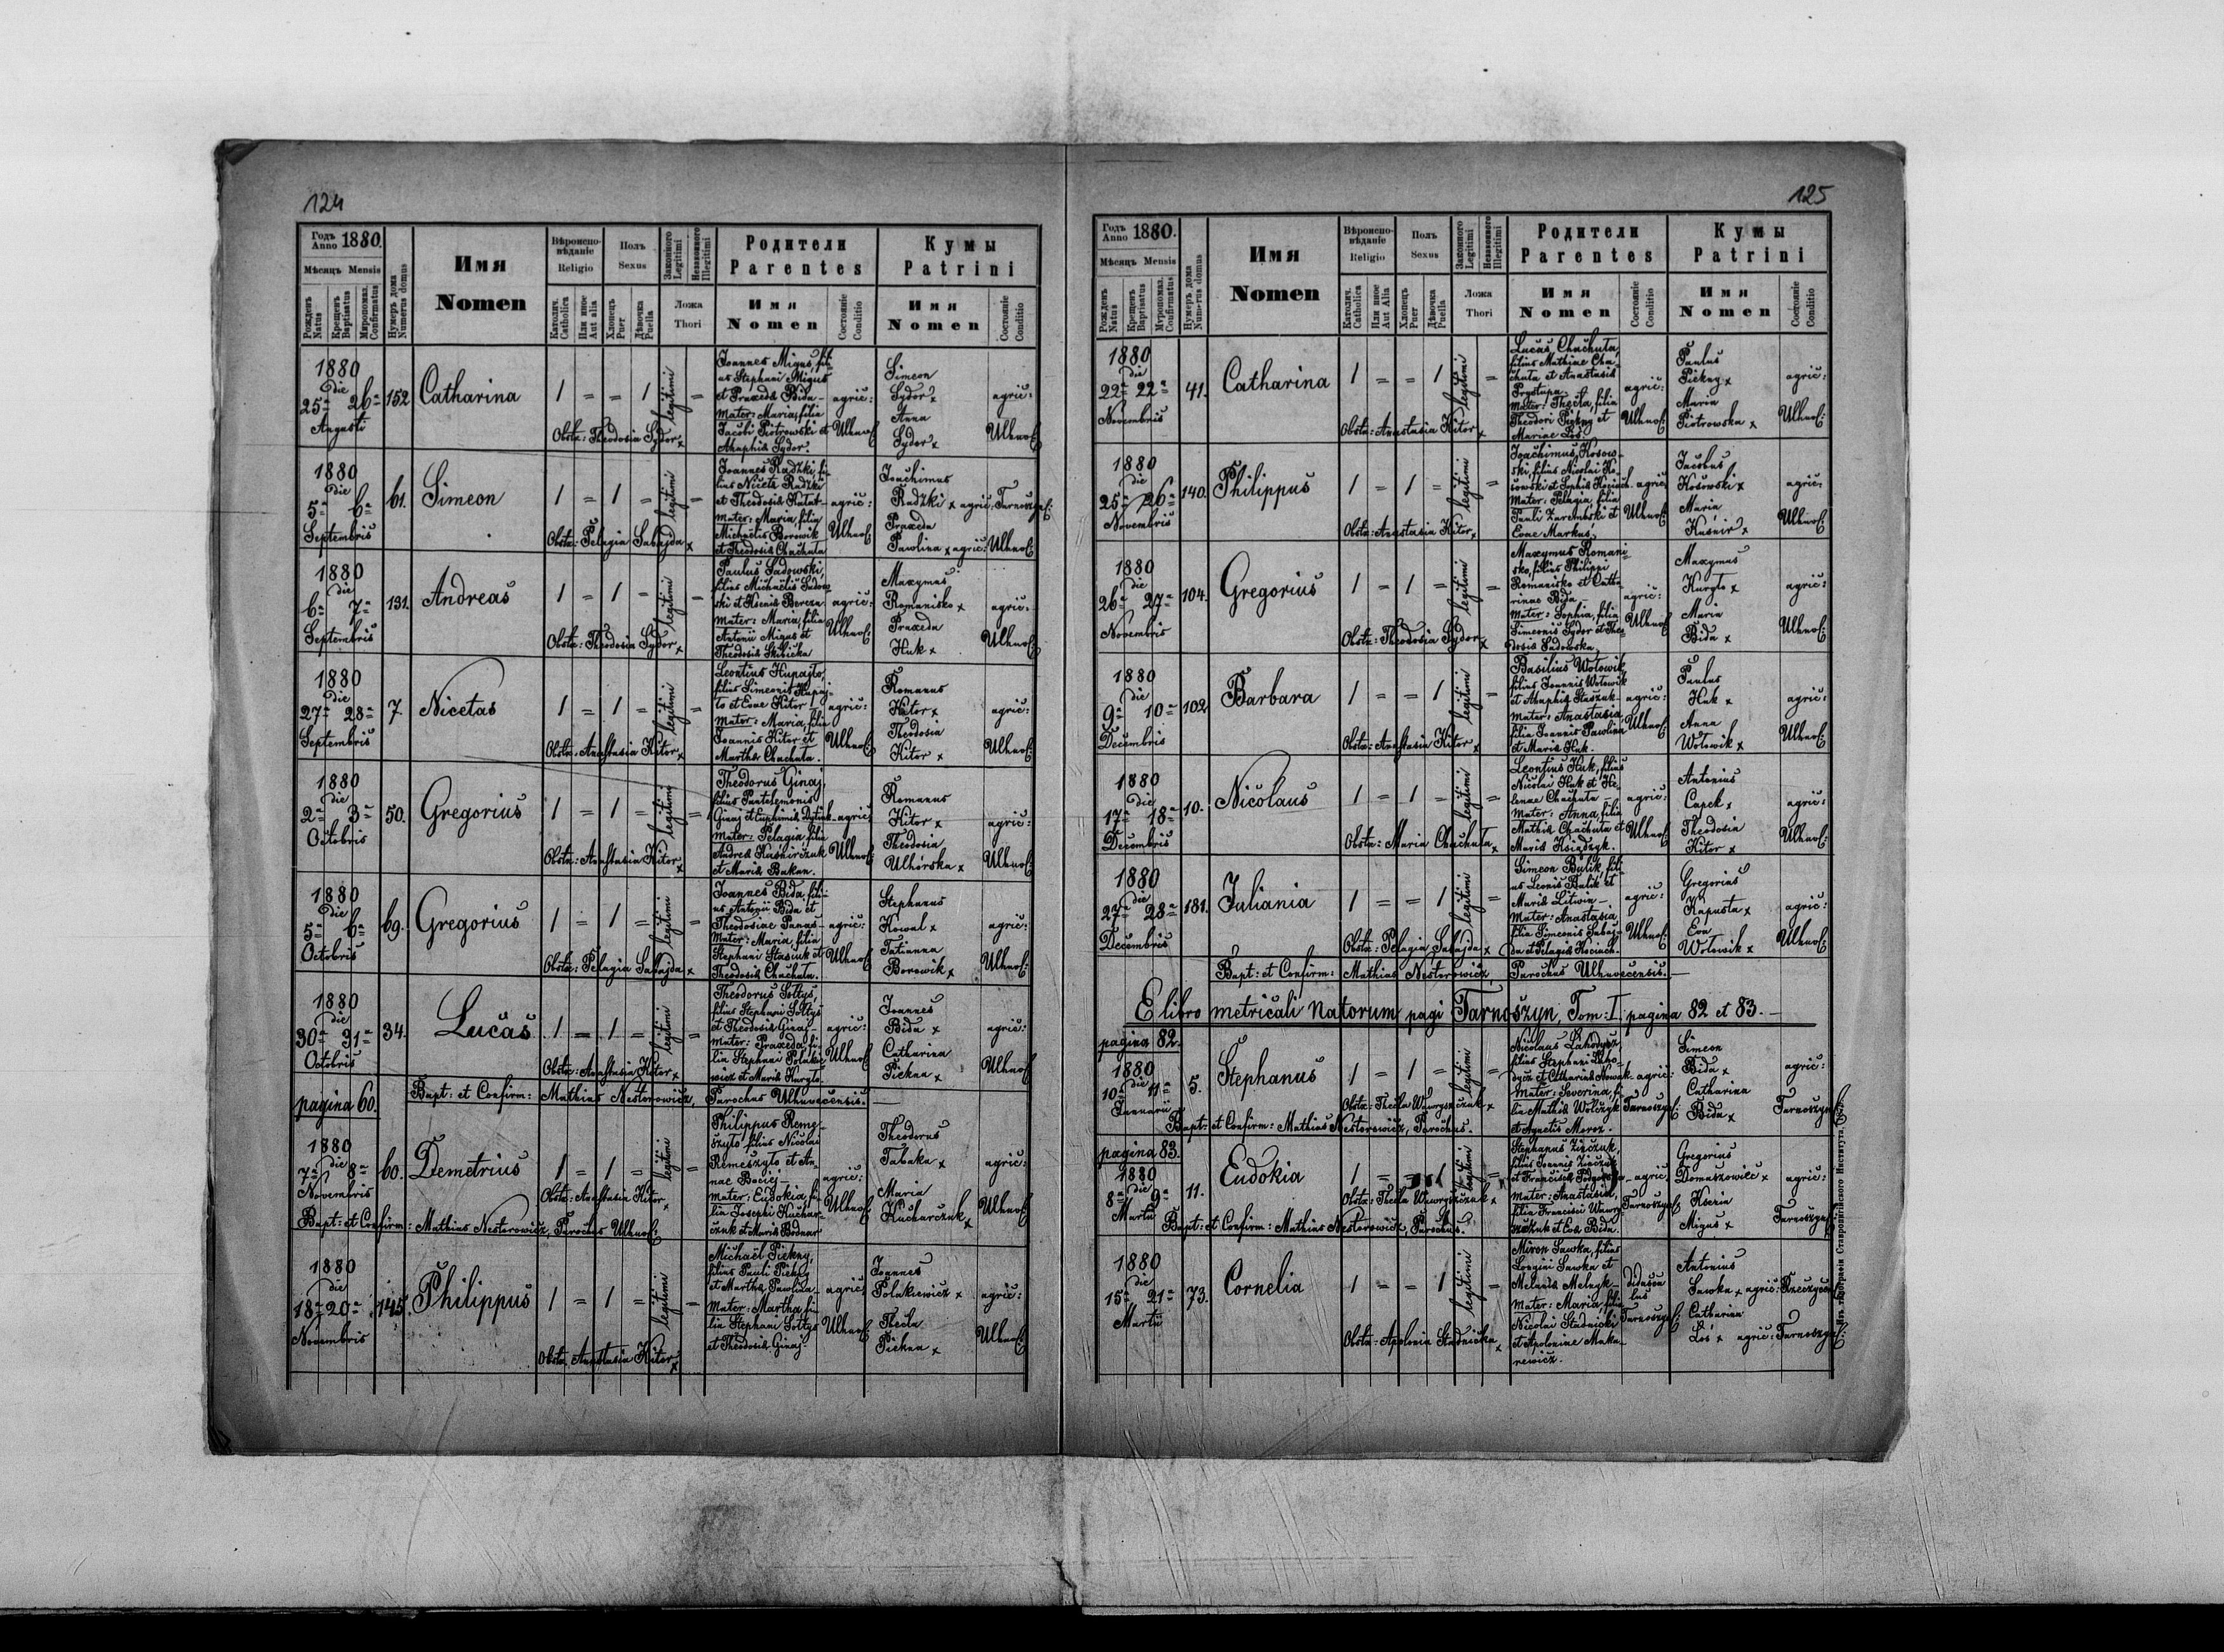 124
Годъ Anno 1880.
Мѣсяцъ Mensis
Рожденъ Natus
Крещенъ Baptisatus
Миропомаз. Confirmatus
Нумеръ дома Numerus domus
Имя
Nomen
Вѣроиспо-
вѣданіе
Religio
Католич. Catholica
Или иное Aut alia
Полъ
Sexus
Хлопецъ Puer
Дѣвочка Puella
Законного Legitimi
Незаконного Illegitimi
Ложа
Thori
Родители
Parentes
Имя
Nomen
Состояніе Conditio
Кумы
Patrini
Имя
Nomen
Состояніе Conditio
1880
die
25ª 26ª
Augusti
152
Catharina
1 = = 1 legitimi =
Obstx: Theodosia Sydor x
Joannes Migus, fili-
us Stephani Migus
et Praxeda Bida -
Mater: Maria, filia
Jacobi Piotrowski et
Ahaphia Sydor.
agric:
Ulhnof:
Simeon
Sydor x
Anna
Sydor x
agric:
Ulhnof:
1880
die
5ª 6ª
Septembris
61.
Simeon
1 = 1 = legitimi =
Obstx: Pelagia Sabajda x
Joannes Radzki, fi-
lius Niceta Radzki
et Theodosia
Mater: Maria, filia
Michaelis Borowik
et Theodosia Chachuta
agric:
Ulhnof:
Joachimus
Radzki x agric: Tarnoszyn:
Praxeda
Pawlina x agric: Ulhnof:
1880
die
6ª 7ª
Septembris
191.
Andreas
1 = 1 = legitimi =
Obstx: Theodosia Sydor x
Paulus Sadowski,
filius Michaelis Sadow-
ski et Ksenia Bereza
Mater: Maria, filia
Antonii Migus et
Theodosia Skibicka
agric:
Ulhnof:
Maxymus
Romanisko x
Praxeda
Huk x
agric:
Ulhnof:
1880
die
27ª 28ª
Septembris
7
Nicetas
1 = 1 = legitimi =
Obstx: Anastasia Kitor x
Leontius Hupajto,
filius Simeonis Hupaj-
to et Evae Kitor
Mater: Maria, filia
Joannis Kitor et
Martha Chachuta.
agric:
Ulhnof:
Romanus
Kitor x
Theodosia
Kitor x
agric:
Ulhnof:
1880
die
2ª 3ª
Octobris
50.
Gregorius
1 = 1 = legitimi =
Obstx: Anastasia Kitor x
Theodorus Ginaj,
filius Pantelemonis
Ginaj et Euphimia
Mater: Pelagia, filia
Andrea Kaśnirczuk
et Maria Bakan.
agric:
Ulhnof:
Romanus
Kitor x
Theodosia
Ulhórska x
agric:
Ulhnof:
1880
die
5ª 6ª
Octobris
69.
Gregorius
1 = 1 = legitimi =
Obstx: Pelagia Sabajda x
Joannes Bida, fili-
us Antonii Bida et
Theodosiae Panas -
Mater: Maria, filia
Stephani Stasiuk et
Theodosia Chachuta.
agric:
Ulhnof:
Stephanus
Kowal x
Tatianna
Borowik x
agric:
Ulhnof:
1880
die
30ª 31ª
Octobris
34.
Lucas
1 = 1 = legitimi =
Obstx: Anastasia Kitor x
Theodorus Sołtys,
filius Stephani Sołtys
et Theodosia Ginaj -
Mater: Praxeda, fi-
lia Stephani Polaki-
wicz et Maria Kuryło.
agric:
Ulhnof:
Joannes
Bida x
Catharina
Piekna x
agric:
Ulhnof:
pagina 60.
Bapt: et Confirm: Mathias Nesterowicz, Parochus Ulhuvecensis.
1880
die
7ª 8ª
Novembris
60.
Demetrius
1 = 1 = legitimi =
Obstx: Anastasia Kitor x
Philippus Reme-
szyło filius Nicolai
Remeszyło et An-
nae Baciej -
Mater: Eudokia, fi-
lia Josephi Kuchar-
czuk et Maria Bodnar
agric:
Ulhnof:
Theodorus
Tabaka x
Maria
Kucharczuk x
agric:
Ulhnof:
Bapt: et Confirm: Mathias Nesterowicz, Parochus Ulhnof:
1880
die
18ª 20ª
Novembris
145.
Philippus
1 = 1 = legitimi =
Obstx: Anastasia Kitor x
Michaël Piekny,
filius Pauli Piekny
et Martha Pawlina -
Mater: Martha fi-
lia Stephani Sołtys
et Theodosia Ginaj.
agric:
Ulhnof:
Joannes
Polakiewicz x
Thecla
Piekna x
agric:
Ulhnof:
125
Годъ Anno 1880.
Мѣсяцъ Mensis
Рожденъ Natus
Крещенъ Baptisatus
Мѵропомаз. Confirmatus
Нумеръ дома Numerus domus
Имя
Nomen
Вѣроиспо-
вѣданіе
Religio
Католич. Catholica
Или иное Aut Alia
Полъ
Sexus
Хлопецъ Puer
Дѣвочка Puella
Законного Legitimi
Незаконного Illegitimi
Ложа
Thori
Родители
Parentes
Имя
Nomen
Состояніе Conditio
Кумы
Patrini
Имя
Nomen
Состояніе Conditio
1880
die
22ª 22ª
Novembris
41.
Catharina
1 = = 1 legitimi =
Obstx: Anastasia Kitor x
Lucas Chachuta,
filius Mathiae Cha-
chuta et Anastasia
Prystupa -
Mater: Thecla, filia
Theodori Piekny et
Mariae Łoś.
agric:
Ulhnof:
Paulus
Piekny x
Maria
Piotrowska x
agric:
Ulhnof:
1880
die
25ª 26ª
Novembris
140.
Philippus
1 = 1 = legitimi =
Obstx: Anastasia Kitor x
Joachimus Kosow-
ski, filius Nicolai Ko-
sowski et Sophia Kociuch.
Mater: Pelagia, filia
Pauli Zarembski et
Evae Markus.
agric:
Ulhnof:
Jacobus
Kosowski x
Maria
Kuśnir x
agric:
Ulhnof:
1880
die
26ª 27ª
Novembris
104.
Gregorius
1 = 1 = legitimi =
Obstx: Theodosia Sydor x
Maxymus Romani-
sko, filius Philippi
Romanisko et Catha-
rinae Bida -
Mater: Sophia, filia
Simeonis Sydor et Theo-
dosia Sadowska.
agric:
Ulhnof:
Maxymus
Kuryło x
Maria
Bida x
agric:
Ulhnof:
1880
die
9ª 10ª
Decembris
102
Barbara
1 = = 1 legitimi =
Obstx: Anastasia Kitor x
Basilius Wołowik,
filius Joannis Wołowik
et Ahaphia Staszuk -
Mater: Anastasia
filia Joannis Pawlina
et Maria Huk.
agric:
Ulhnof:
Paulus
Huk x
Anna
Wołowik x
agric:
Ulhnof:
1880
die
17ª 18ª
Decembris
10.
Nicolaus
1 = 1 = legitimi =
Obstx: Maria Chachuta x
Leontius Huk, filius
Nicolai Huk et He-
lenae Chachuta -
Mater: Anna, filia
Mathia Chachuta et
Maria Książyk.
agric:
Ulhnof:
Antonius
Capek x
Theodosia
Kitor x
agric:
Ulhnof:
1880
die
27ª 28ª
Decembris
181.
Juliania
1 = = 1 legitimi =
Obstx: Pelagia Sabajda x
Simeon Bulik, fili-
us Leonis Bulik et
Maria Litwin -
Mater: Anastasia
filia Simeonis Sabaj-
da et Pelagia Kociuch.
agric:
Ulhnof:
Gregorius
Kapusta x
Eva
Wołowik x
agric:
Ulhnof:
Bapt: et Confirm: Mathias Nesterowicz Parochus Ulhuvecensis.
E libro metricali Natorum pagi Tarnoszyn, Tom: I. pagina 82 et 83.
pagina 82.
1880
die
10ª 11ª
Januarii
5.
Stephanus
1 = 1 = legitimi =
Obstx: Thecla Wawryszczuk x
Nicolaus Łahodycz
filius Stephani Łaho-
dycz et Catharina Nowak -
Mater: Severina, fi-
lia Mathia Wolczyk
et Agnetis Moroz.
agric:
Tarnoszyn:
Simeon
Bida x
Catharina
Bida x
agric:
Tarnoszyn:
Bapt: et Confirm: Mathias Nesterowicz, Parochus.
pagina 83.
1880
die
8ª 9ª
Martii
11.
Eudokia
1 = 1 legitimi =
Obstx: Thecla Wawryszczuk x
Stephanus Zinczuk,
filius Joannis Zinczuk
et Francisca
Mater: Anastasia,
filia Francisci Wawry-
szczuk et Eva Bida.
agric:
Tarnoszyn:
Gregorius
Domaszowiec x
Ksenia
Migus x
agric:
Tarnoszyn:
Bapt: et Confirm: Mathias Nesterowicz, Parochus.
1880
die
15ª 21ª
Martii
73.
Cornelia
1 = = 1 legitimi =
Obstx: Apolonia Stadnicka x
Miron Sawka, filius
Longini Sawka et
Melania Melnyk -
Mater: Maria, filia
Nicolai Stadnicki
et Apoloniae Maka-
rewicz.
Tarnoszyn:
Antonius
Sawka x agric: Rzeczyca:
Catharina
Łoś x agric: Tarnoszyn:
Изъ типографіи Ставропигійского Института